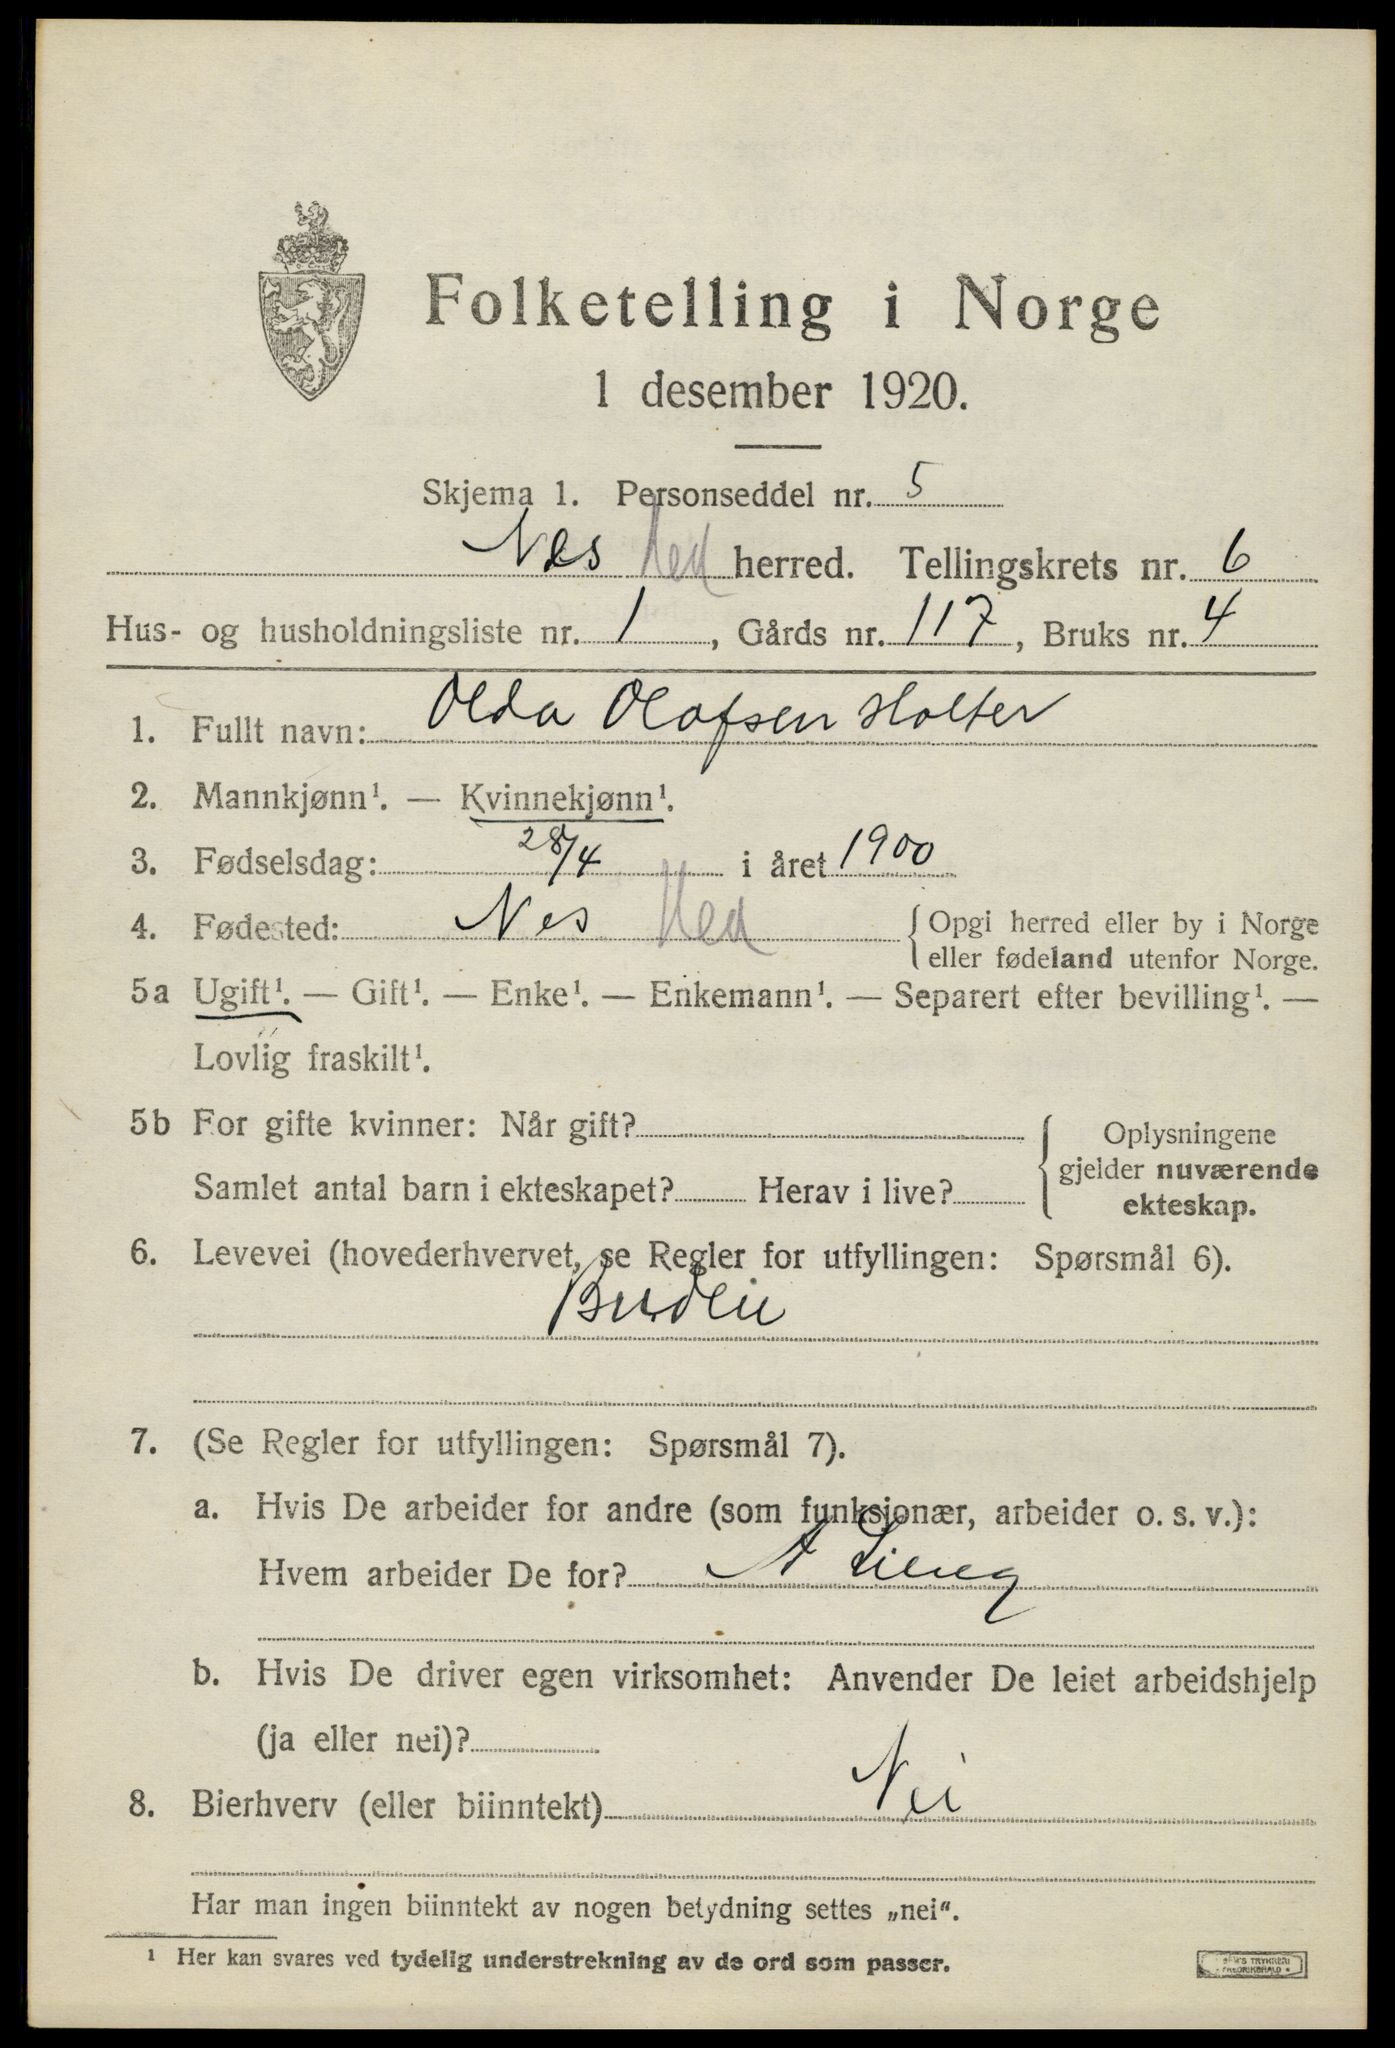 Folketelling i Norge
1 desember 1920.
Skjema 1. Personseddel nr. 5
Nes Hed herred. Tellingskrets nr. 6
Hus- og husholdningsliste nr. 1, Gårds nr. 117, Bruks nr. 4
1. Fullt navn: Olda Olafsen Holter
2. Mannkjønn¹. — Kvinnekjønn¹.
3. Fødselsdag: 28/4 i året 1900
4. Fødested: Nes Hed { Opgi herred eller by i Norge
eller fødeland utenfor Norge.
5a Ugift¹. — Gift¹. — Enke¹. — Enkemann¹. — Separert efter bevilling¹. —
Lovlig fraskilt¹.
5b For gifte kvinner: Når gift?
Samlet antal barn i ekteskapet? Herav i live?
{ Oplysningene
gjelder nuværende
ekteskap.
6. Levevei (hovederhvervet, se Regler for utfyllingen: Spørsmål 6).
Budeie
7. (Se Regler for utfyllingen: Spørsmål 7).
a. Hvis De arbeider for andre (som funksjonær, arbeider o. s. v.):
Hvem arbeider De for? A
b. Hvis De driver egen virksomhet: Anvender De leiet arbeidshjelp
(ja eller nei)?
8. Bierhverv (eller biinntekt) Nei
Har man ingen biinntekt av nogen betydning settes „nei“.
¹ Her kan svares ved tydelig understrekning av de ord som passer.
TRYKKERI
FREDRIKSHALD